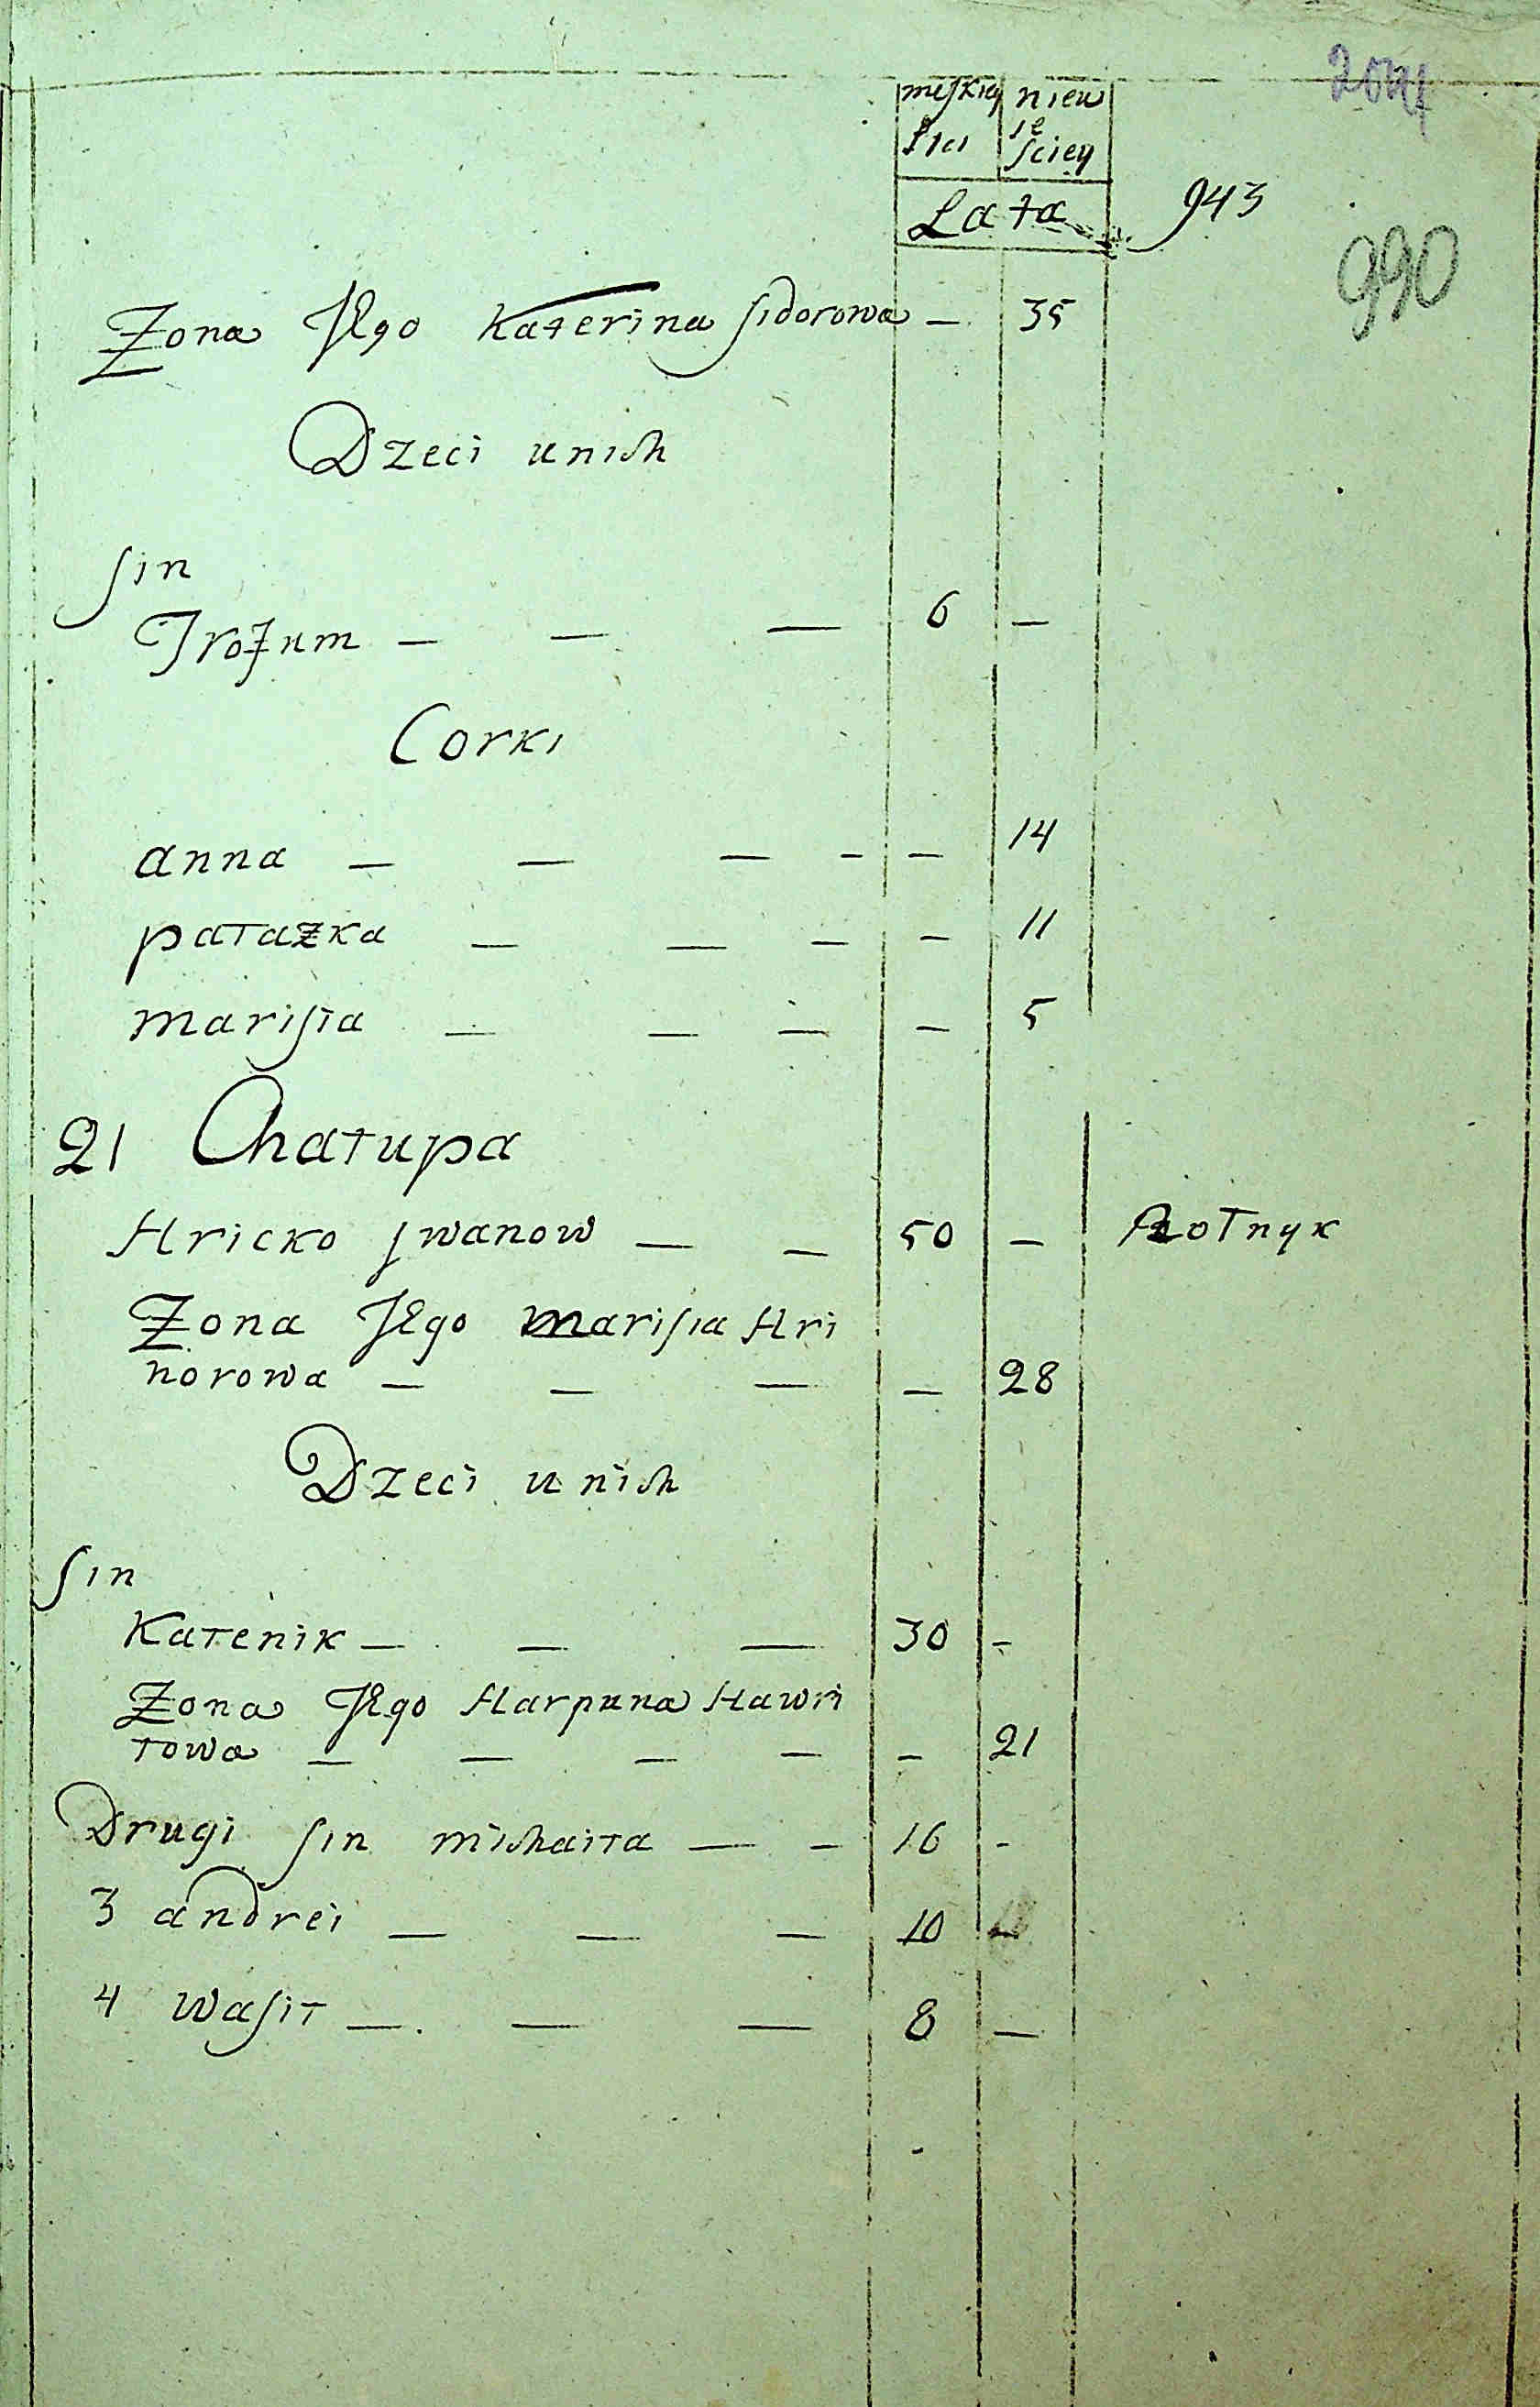 męskiey niew
płci ie
sciey
Lata 943
990
Zona Jego Katerina Sidorowa — 35
Dzeci unich
Sin
Trofum — — — 6 —
Corki
anna — — — - — 14
pałazka — — — — 11
marisia — — — — 5
21 Chałupa
Hricko Jwanow — — 50 — Rołnyk
Zona Jego marisia Hri
horowa — — — — 28
Dzeci u nich
Sin
Kałenik — — — 30 -
Zona Jego Harpuna Hawri
łowa — — — — - 21
Drugi Sin michaiła — - 16 -
3 andrei — — — 10 -
4 wasił — — — 8 —